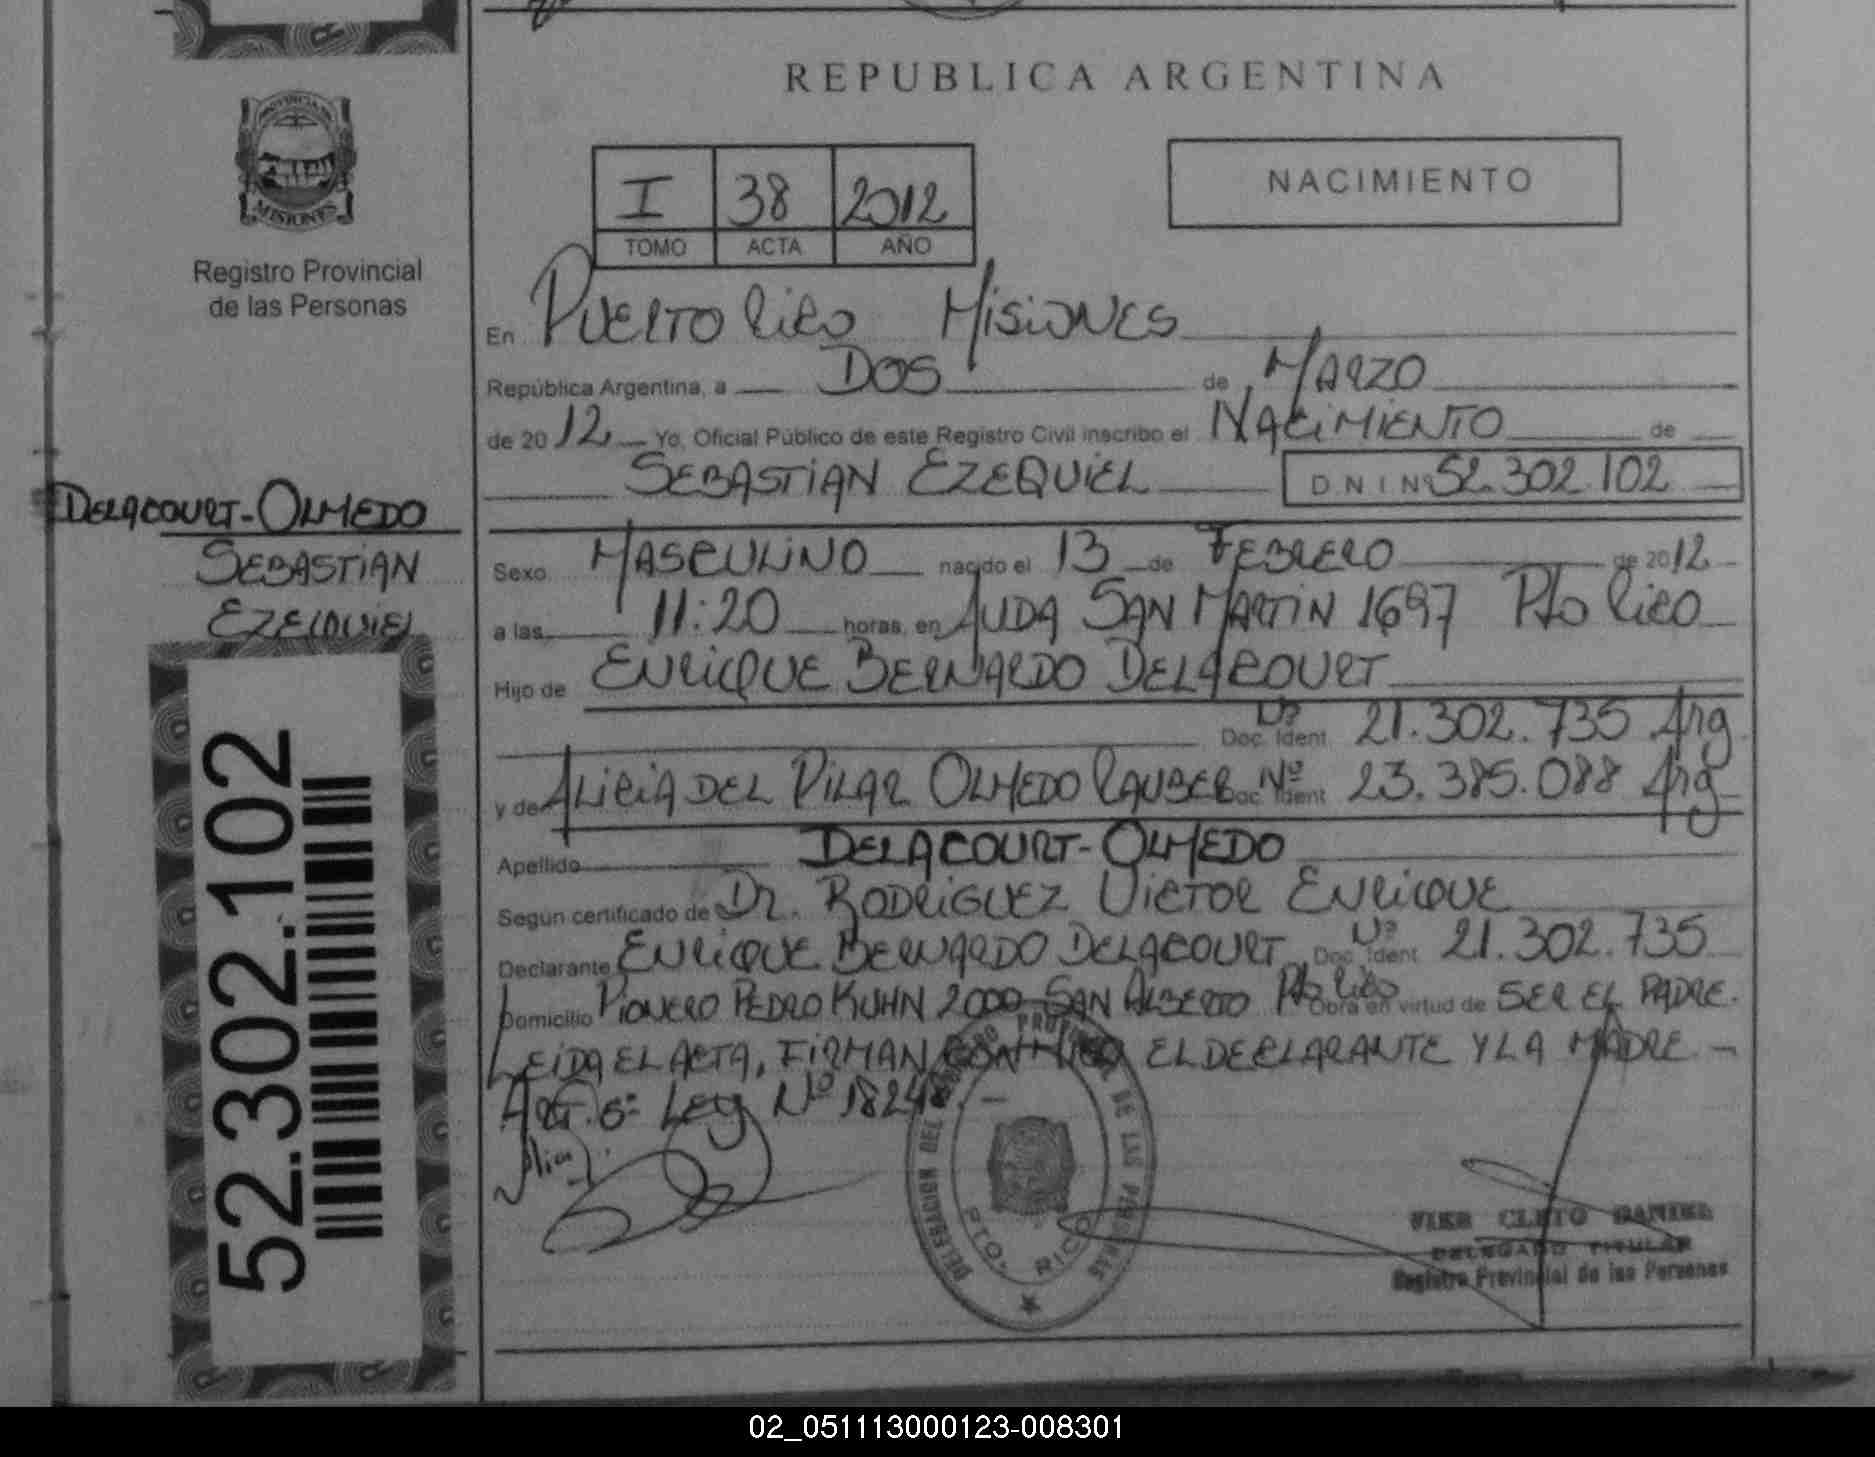 PROVINCIA DE
MISIONES
Registro Provincial
de las Personas
DELACOURT-OLMEDO
SEBASTIAN
EZEQUIEL
52.302.102
REPUBLICA ARGENTINA
I 38 2012
TOMO ACTA AÑO
NACIMIENTO
En PUERTO RICO MISIONES
República Argentina, a DOS de MARZO
de 2012 Yo, Oficial Público de este Registro Civil inscribo el NACIMIENTO de
SEBASTIAN EZEQUIEL D N I Nº 52.302.102
Sexo MASCULINO nacido el 13 de FEBRERO de 2012
a las 11:20 horas, en AVDA SAN MARTIN 1697 Pto RICO
Hijo de ENRIQUE BERNARDO DELACOURT
Nº Doc. Ident. 21.302.735 Arg
y de ALICIA DEL PILAR OLMEDO RAUBER Doc. Nº Ident. 23.385.088 Arg
Apellido DELACOURT-OLMEDO
Según certificado de Dr. RODRIGUEZ VICTOR ENRIQUE
Declarante ENRIQUE BERNARDO DELACOURT Nº Doc. Ident. 21.302.735
Domicilio PIONERO PEDRO KUHN 2000 SAN ALBERTO Pto RICO Obra en virtud de SER EL PADRE.
LEIDA EL ACTA, FIRMAN CONMIGO EL DECLARANTE Y LA MADRE.-
Art. 5º Ley Nº 18248.-
DELEGACION DEL REGISTRO PROVINCIAL DE LAS PERSONAS
PTO. RICO
CLETO DANIEL
DELEGADO TITULAR
Registro Provincial de las Personas
02_051113000123-008301